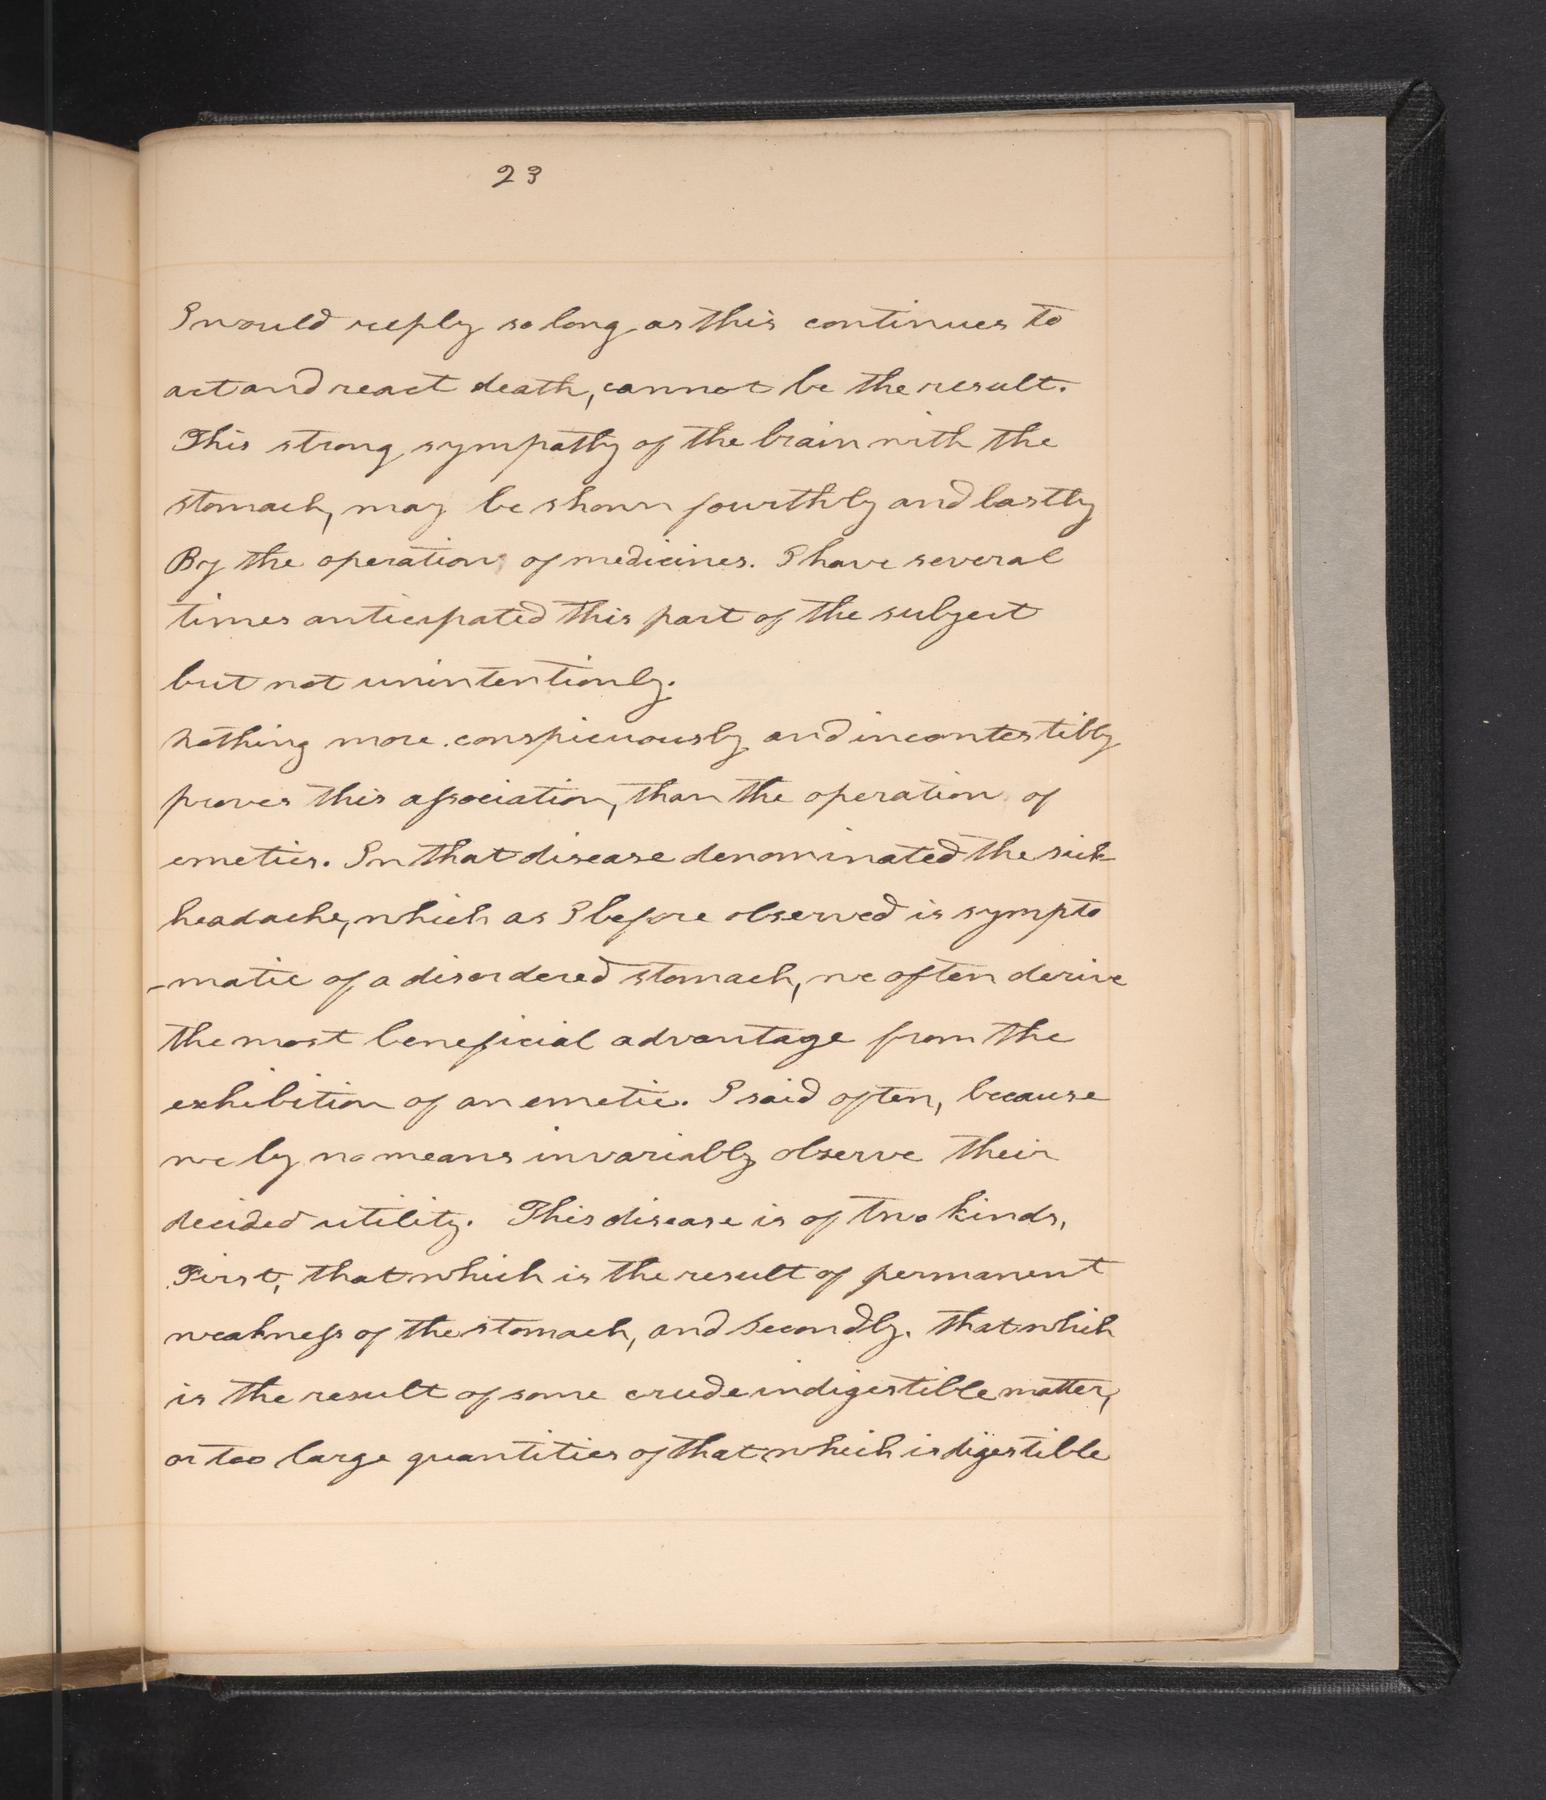 23
I would reply so long as this continues to
act and react death, cannot be the result.
This strong sympathy of the brain with the
stomach, may be shown fourthly and lastly
By the operation of medicines. I have several
times anticipated this part of the subject
but not unintentionly.
Nothing more conspicuously and incontestibly
proves this association, than the operation of
emetics. In that disease denominated the sick
headache, which as I before observed is sympto
-matic of a disordered stomach, we often derive
the most beneficial advantage from the
exhibition of an emetic. I said often, because
we by no means invariably observe their
decided utility. This disease is of two kinds,
First, that which is the result of permanent
weakness of the stomach, and Secondly. that which
is the result of some crude indigestible matter,
or too large quantities of that which is digestible